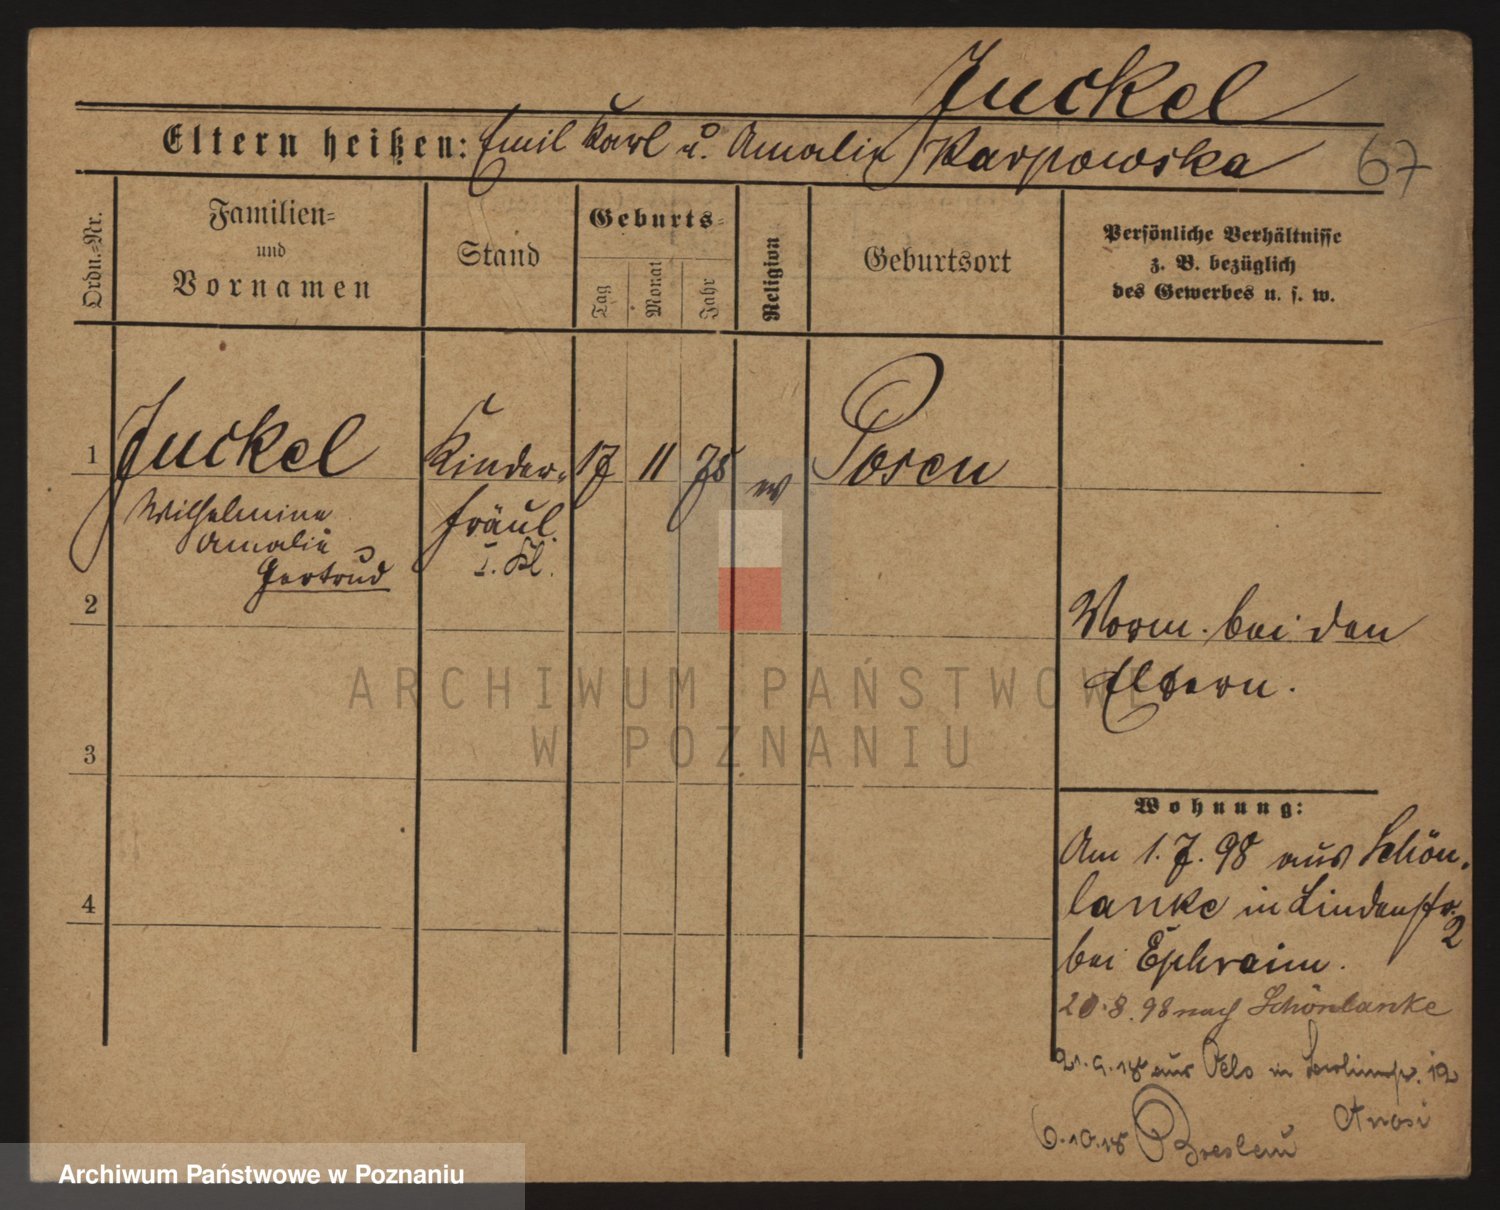 Juckel
Eltern heißen: Emil Karl u. Amalie Karpowska
67
Ordn.=Nr.
Familien=
und
Vornamen
Stand
Geburts=
Tag
Monat
Jahr
Religion
Geburtsort
Persönliche Verhältnisse
z. B. bezüglich
des Gewerbes u. s. w.
1 Juckel Kinder= 17 11 75 ev Posen
Wilhelmine fräul.
Amalie I. Kl.
Gertrud
2
Vorm. bei den
Eltern.
ARCHIWUM PAŃSTWOWE
W POZNANIU
3
Wohnung:
Am 1. 7. 98 aus Schön=
4
lanke in Lindenstr. 2
bei Ephraim.
20.8.98 nach Schönlanke
21.9.18 aus Oels in 12
6.10.18 Breslau
Archiwum Państwowe w Poznaniu